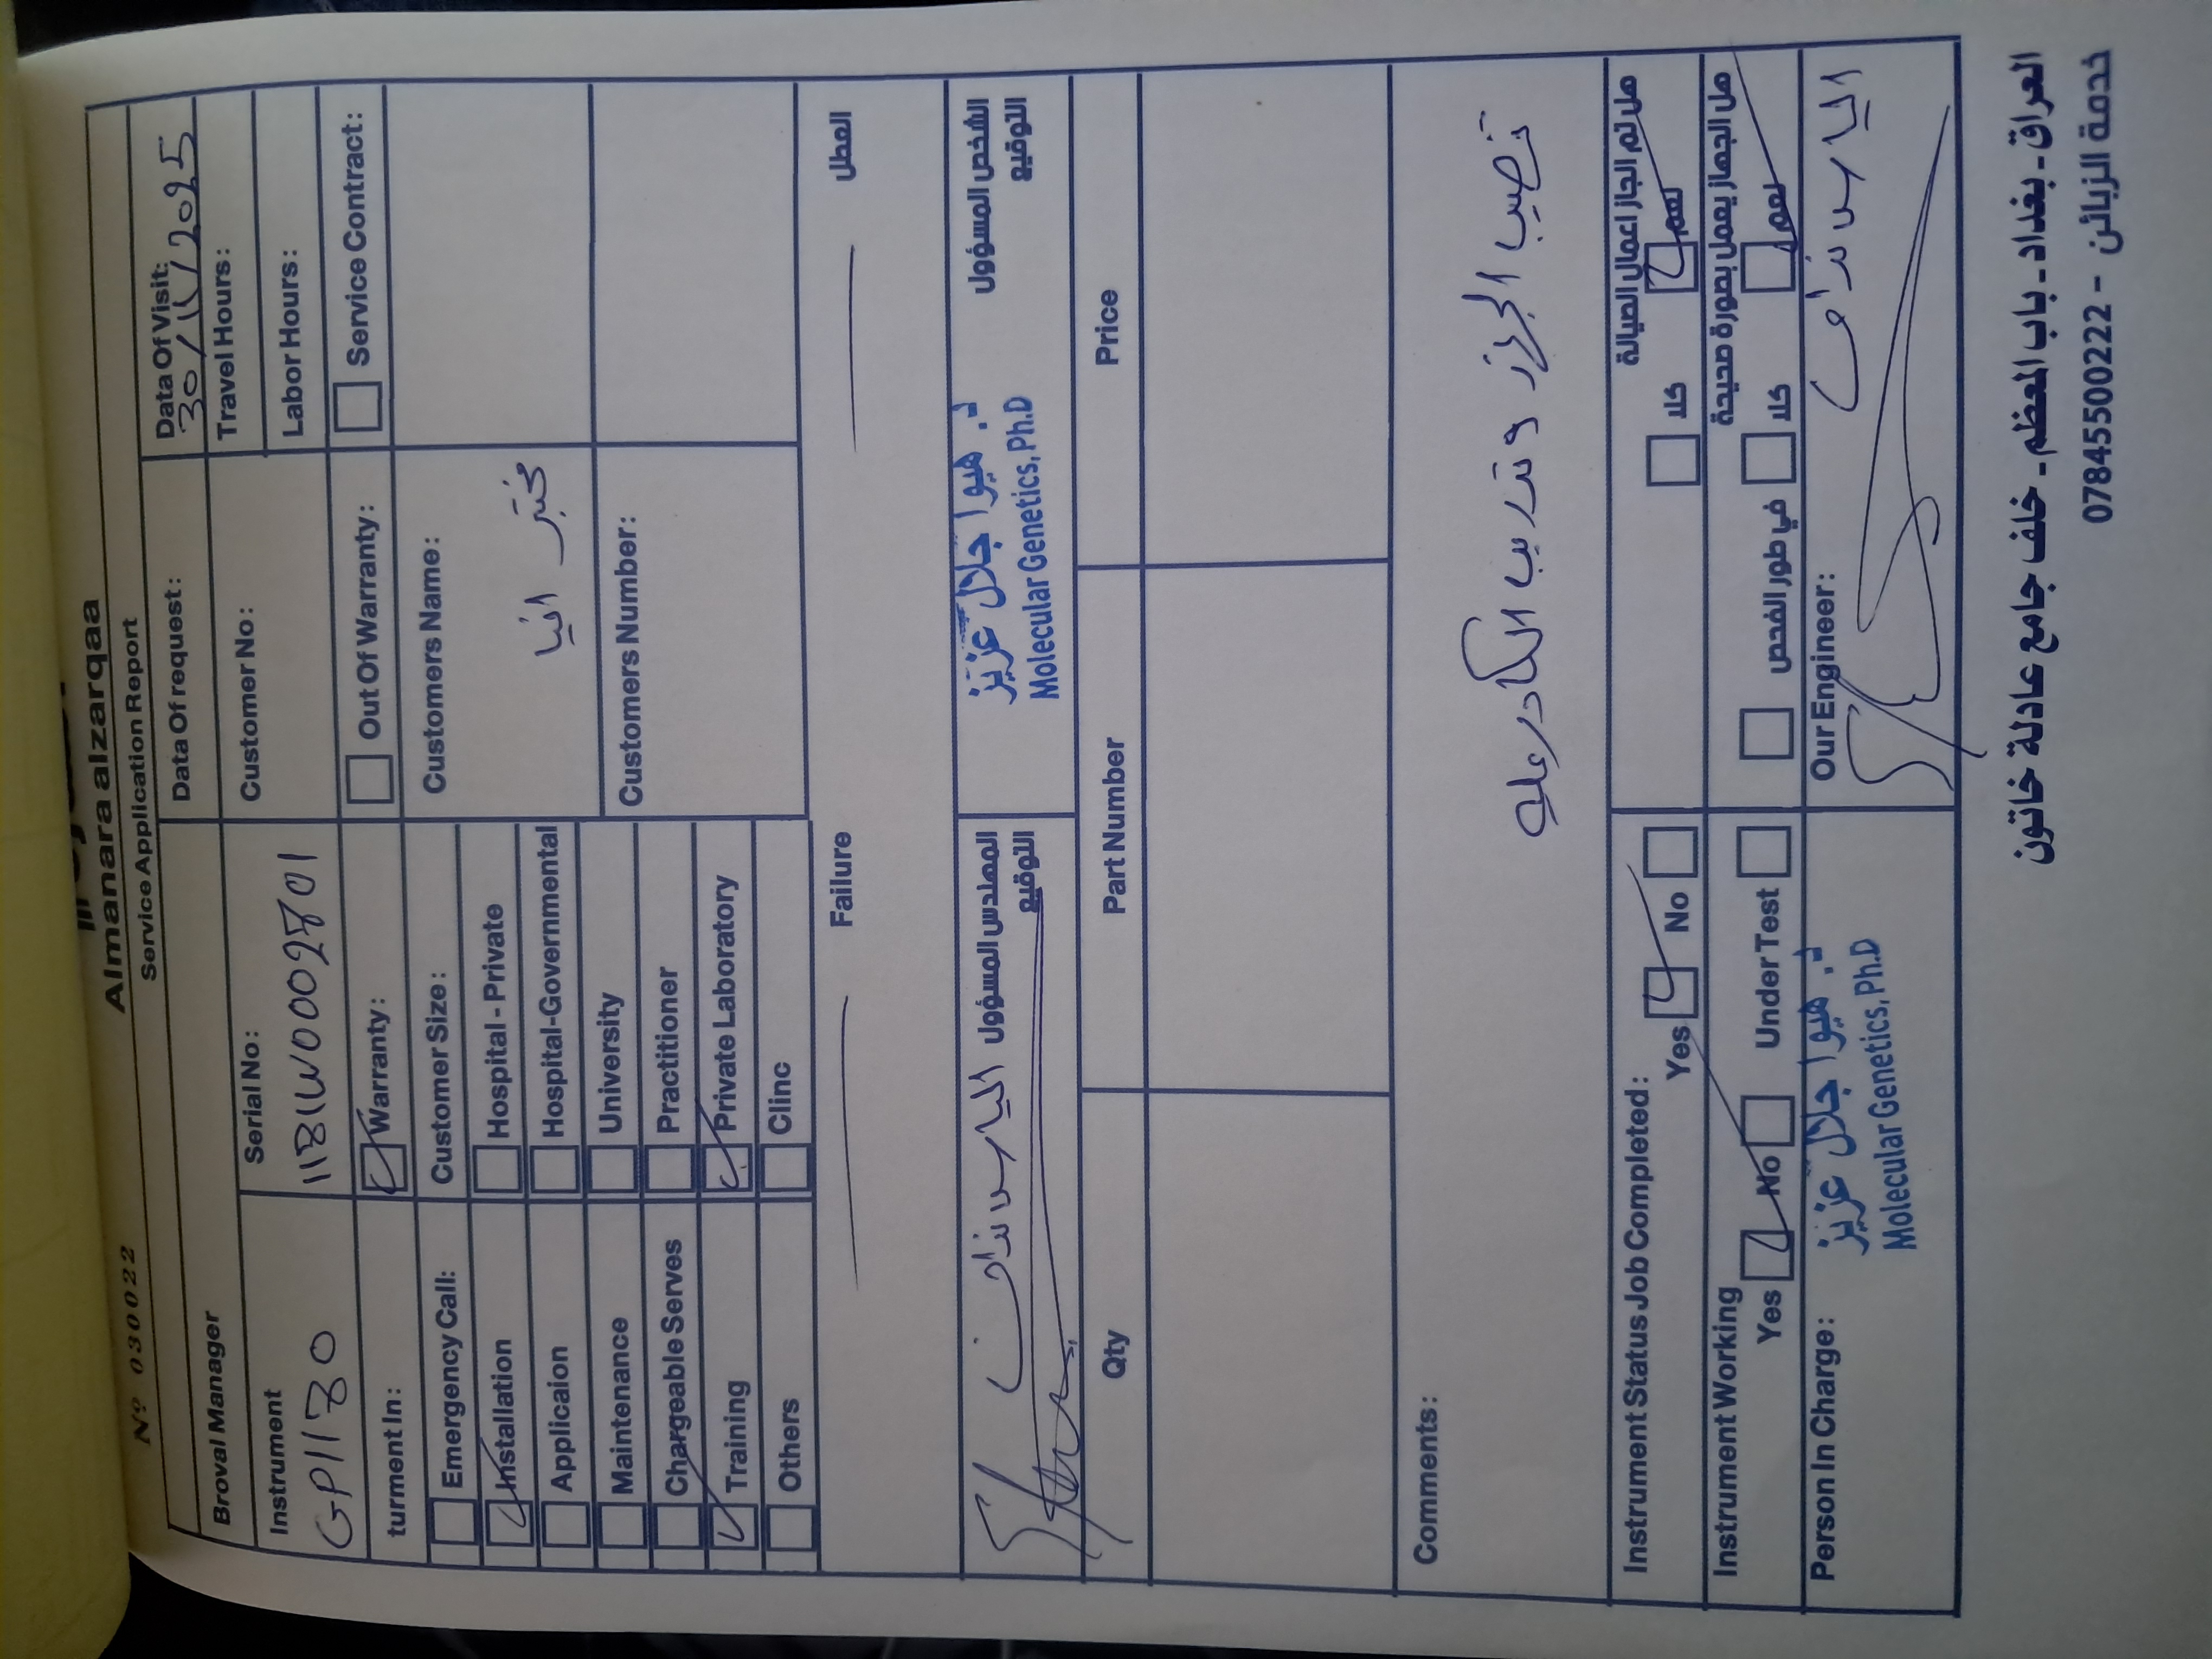 Almanara alzarqaa
Nº 030022
Service Application Report
Data Of request:
Data Of Visit:
30/11/2025
Broval Manager
Travel Hours:
Instrument
Serial No:
Customer No:
Labor Hours:
turment In:
Warranty:
Out Of Warranty:
Service Contract:
Emergency Call:
Customer Size:
Customers Name:
Installation
Hospital - Private
مختبر
Applicaion
Hospital-Governmental
Maintenance
University
Customers Number:
Chargeable Serves
Practitioner
Training
Private Laboratory
Others
Clinc
Failure
العطل
المهندس المسؤول
التوقيع
الشخص المسؤول
التوقيع
د. هيوا جلال عزيز
Molecular Genetics, Ph.D
Qty
Part Number
Price
Comments:
تنصيب الجهاز وتدريب الكادر عليه
Instrument Status Job Completed:
Yes
No
هل تم انجاز اعمال الصيانة
كلا
نعم
Instrument Working
Yes
No
Under Test
هل الجهاز يعمل بصورة صحيحة
في طور الفحص
كلا
نعم
Person In Charge:
د. هيوا جلال عزيز
Molecular Genetics, Ph.D
Our Engineer:
العراق - بغداد - باب المعظم - خلف جامع عادلة خاتون
خدمة الزبائن - 07845500222